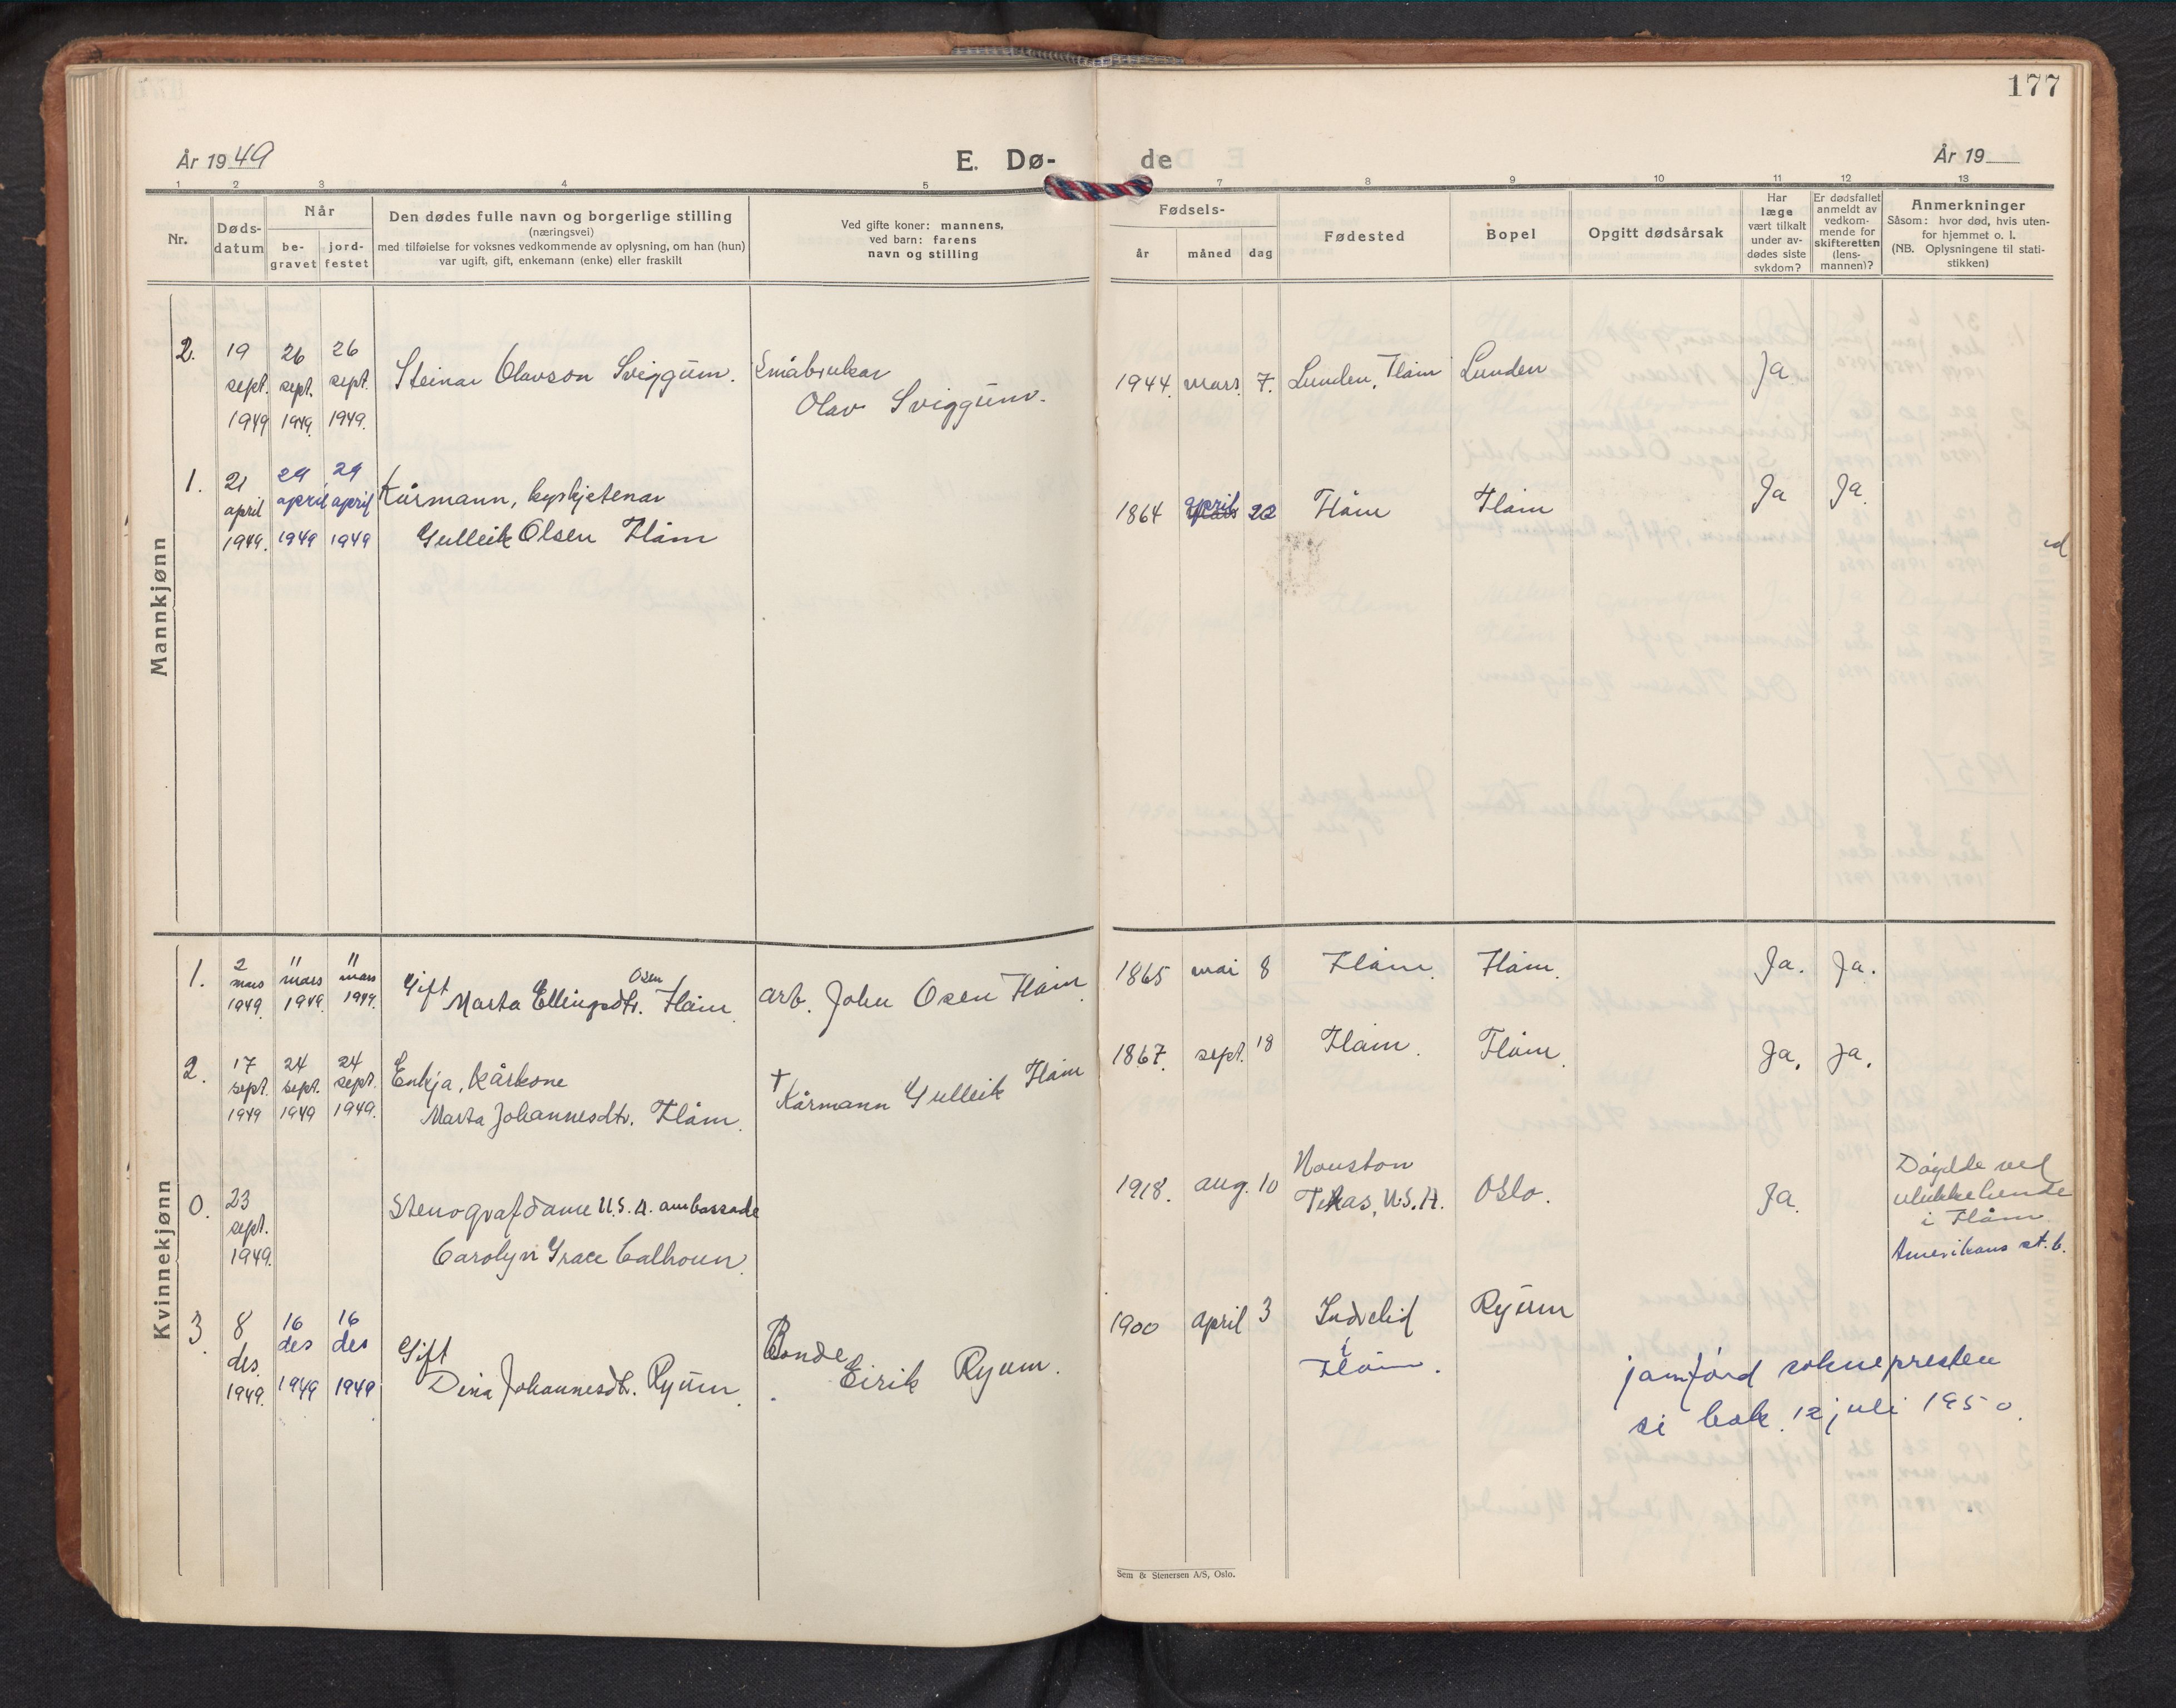 177
År 1949
E. Dø-
de
År 19
1 2 3 4 5 7 8 9 10 11 12 13
Nr.
Døds-
datum
Når
be-
gravet
jord-
festet
Den dødes fulle navn og borgerlige stilling
(næringsvei)
med tilføielse for voksnes vedkommende av oplysning, om han (hun)
var ugift, gift, enkemann (enke) eller fraskilt
Ved gifte koner: mannens,
ved barn: farens
navn og stilling
Fødsels-
år måned dag
Fødested
Bopel
Opgitt dødsårsak
Har
læge
vært tilkalt
under av-
dødes siste
sykdom?
Er dødsfallet
anmeldt av
vedkom-
mende for
skifteretten
(lens-
mannen)?
Anmerkninger
Såsom: hvor død, hvis uten-
for hjemmet o. l.
(NB. Oplysningene til stati-
stikken)
Mannkjønn
2.
19
sept.
1949
26
sept.
1949.
26
sept.
1949.
Steinar Olavson Sviggum.
Småbrukar
Olav Sviggum.
1944. mars. 7.
Lunden, Flåm
Lunden
Ja
1.
21
april
1949.
29
april
1949
29
april
1949
Kårmann, kyrkjetenar
Gulleik Olsen Flåm
1864 april 22
Flåm
Flåm
Ja
Ja
Kvinnekjønn
1.
2
mars
1949.
11
mars
1949.
11
mars
1949.
Gift
Osen
Marta Ellingsdtr. Flåm.
arb. John Osen Flåm
1865 mai 8
Flåm.
Flåm.
Ja.
Ja.
2.
17
sept.
1949
24
sept.
1949
24
sept.
1949.
Enkja, Kårkone
Marta Johannesdtr. Flåm.
†
Kårmann Gulleik Flåm
1867. sept. 18
Flåm.
Flåm.
Ja.
Ja.
0.
23
sept.
1949.
Stenografdame U.S.A. ambassade
Carolyn Grace Calhoun.
1918. aug. 10
Houston
Texas, U.S.A.
Oslo.
Ja.
Døydde ved
ulukkehende
i Flåm.
Amerikans st. b.
3.
8
des.
1949.
16
des
1949
16
des
1949
Gift
Dina Johannesdtr. Ryum.
Bonde
Eirik Ryum.
1900 april 3
Indrelid
i
Flåm.
Ryum
jamførd soknepresten
si bok. 12 juli 1950.
Sem & Stenersen A/S, Oslo.